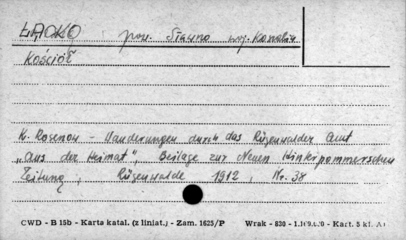 ŁĄCKO pow. Sławno woj. Koszalin
Kościół
K. Rosenow - Wanderungen durch das Rügenwalder Amt
„Aus der Heimat", Beilage zur Neuen Hinterpommerschen
Zeitung, Rügenwalde 1912, Nr. 38
CWD - B 15b - Karta katal. (z liniat.) - Zam. 1625/P Wrak - 830 - - Kart. 5 kl.